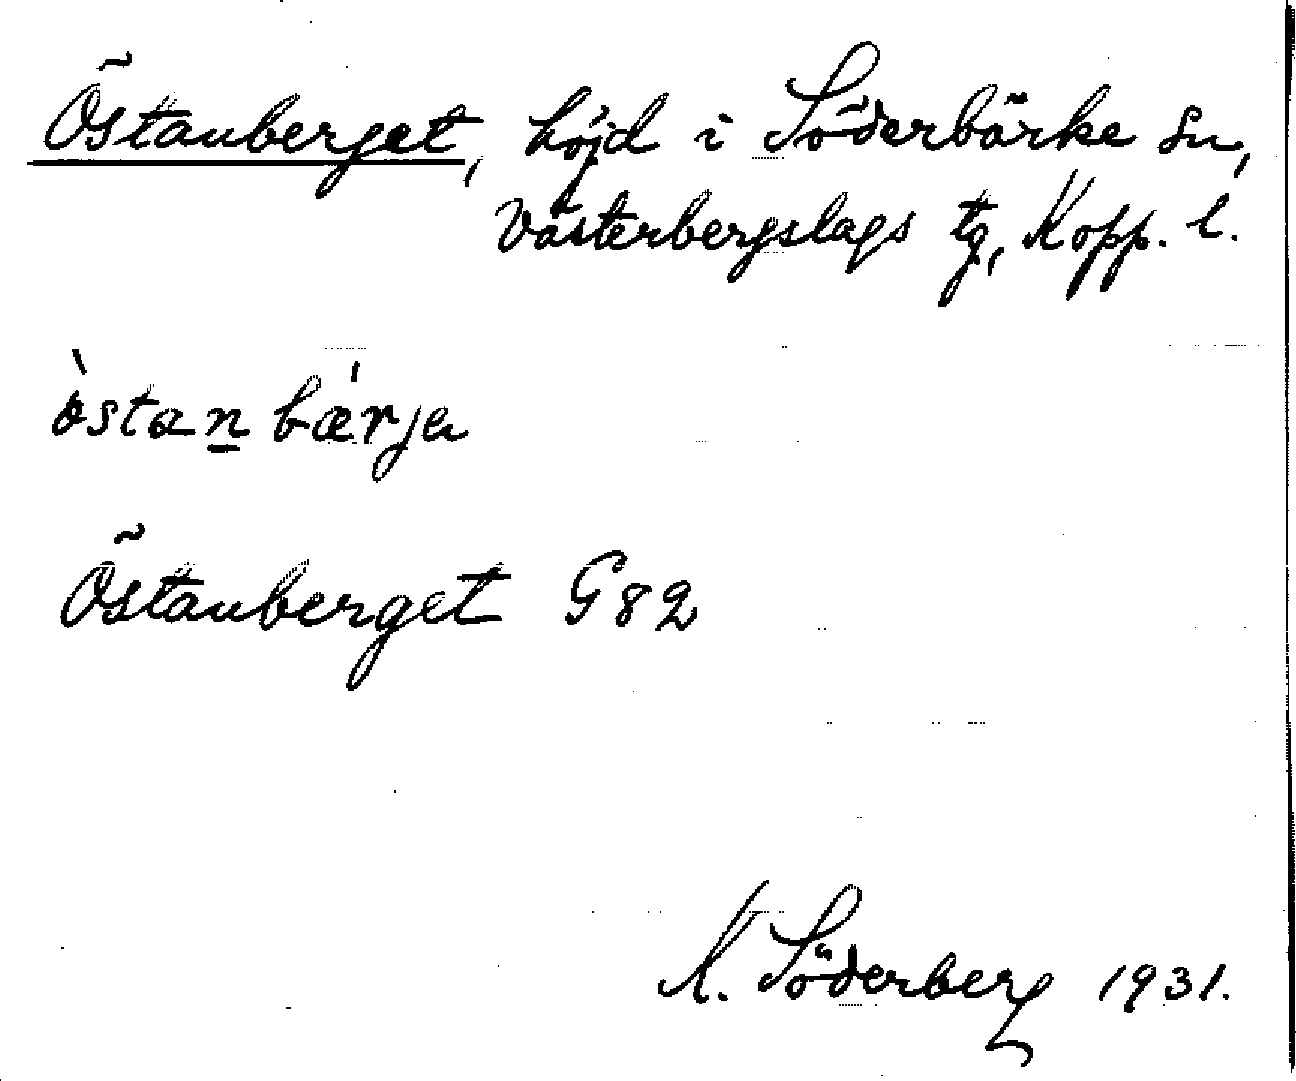 Östanberget, höjd i Söderbärke sn,
Västerbergslags tg, Kopp. l.
östan bærja
Östanberget G82
Söderberg 1931.